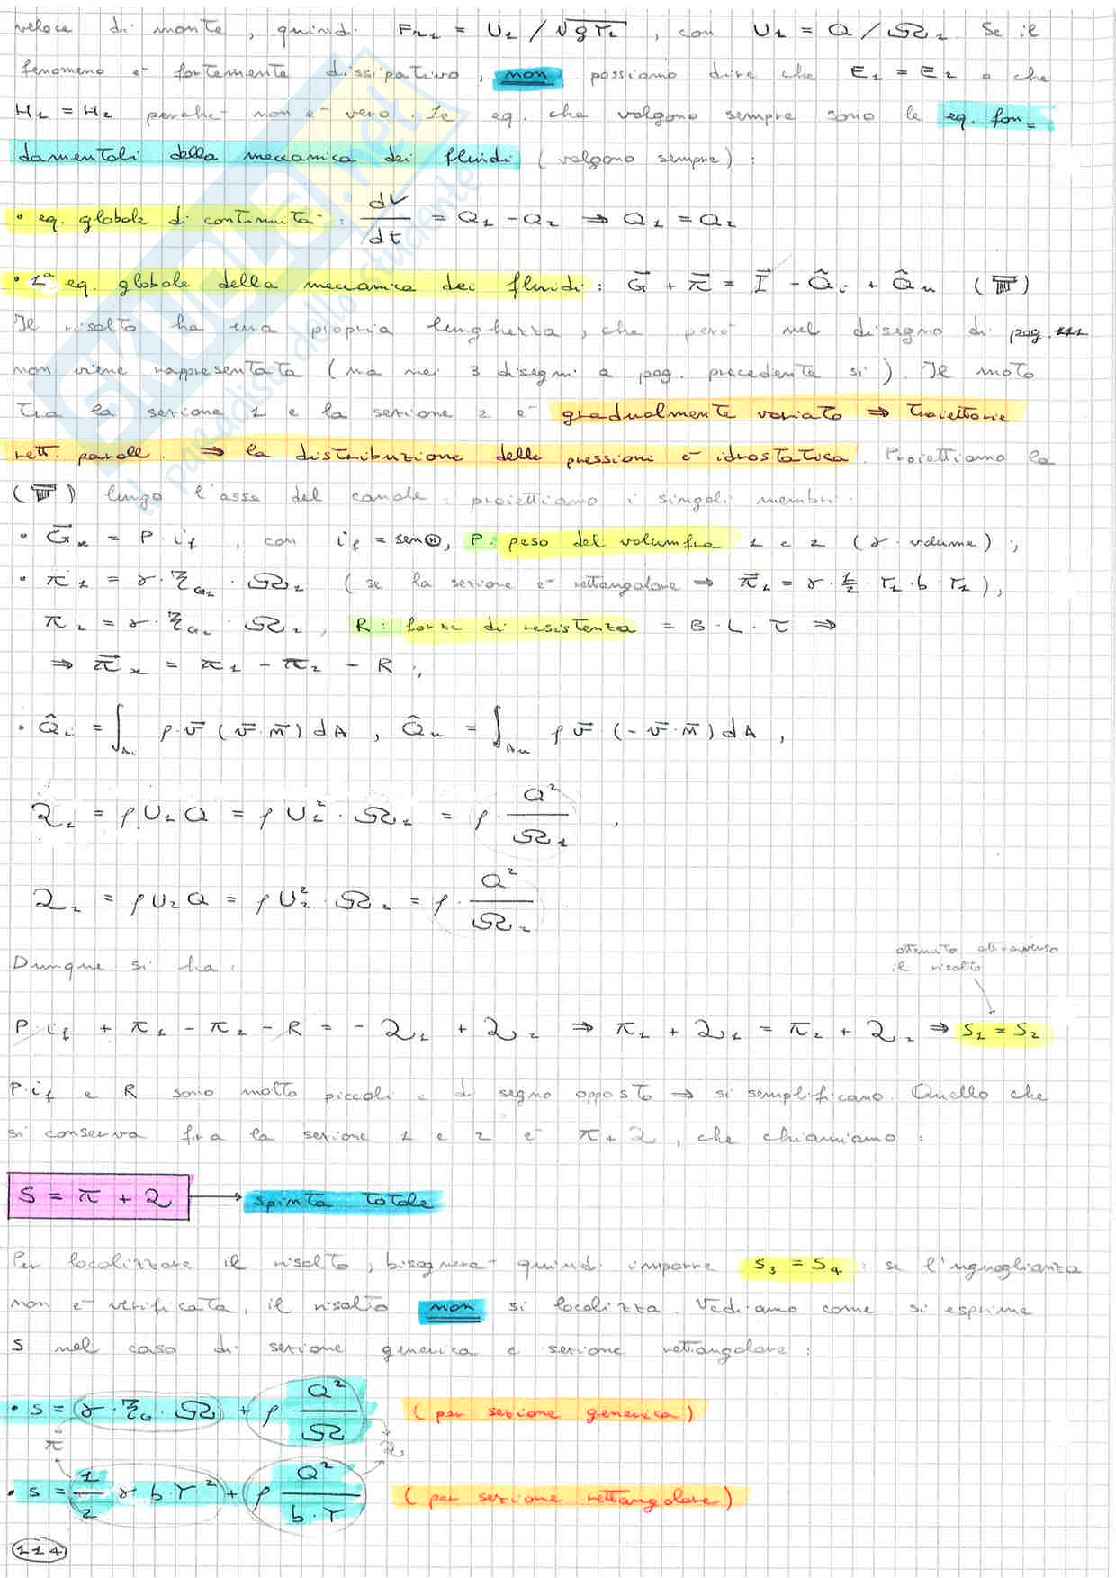 veloce di monte, quindi Fr₁ = U₁ / √gY₁, con U₁ = Q / Ω₁. Se il
fenomeno è fortemente dissipativo, non possiamo dire che E₁ = E₂ o che
H₁ = H₂ perché non è vero. Le eq. che valgono sempre sono le eq. fon=
damentali della meccanica dei fluidi (valgono sempre):
• eq. globale di continuità: dV/dt = Q₁ - Q₂ ⇒ Q₁ = Q₂
• 1ª eq. globale della meccanica dei fluidi: G⃗ + π⃗ = I⃗ - Q̂ᵢ + Q̂ᵤ (III)
Il risalto ha una propria lunghezza, che però nel disegno di pag. 111
non viene rappresentata (ma nei 3 disegni a pag. precedente sì). Il moto
tra la sezione 1 e la sezione 2 è gradualmente variato ⇒ traiettorie
rett. parall. ⇒ la distribuzione delle pressioni è idrostatica. Proiettiamo la
(III) lungo l'asse del canale: proiettiamo i singoli membri.
• G⃗ₓ = P·i_f, con i_f = senΘ, P: peso del volume fra 1 e 2 (γ·volume);
• π₁ = γ·ζ_G₁·Ω₁ (se la sezione è rettangolare ⇒ π⃗₁ = γ·½·Y₁·b·Y₁),
π₂ = γ·ζ_G₂·Ω₂, R: forza di resistenza = B·L·τ ⇒
⇒ π⃗ₓ = π₁ - π₂ - R;
• Q̂ᵢ = ∫_Aᵢ ρ·v⃗ (v⃗·n⃗) dA, Q̂ᵤ = ∫_Aᵤ ρv⃗ (-v⃗·n⃗) dA,
2₁ = ρU₁Q = ρU₁²·Ω₁ = ρ Q²/Ω₁,
2₂ = ρU₂Q = ρU₂²·Ω₂ = ρ·Q²/Ω₂
Dunque si ha:
ottenuto attraverso
il risalto
P·i_f + π₁ - π₂ - R = - 2₁ + 2₂ ⇒ π₁ + 2₁ = π₂ + 2₂ ⇒ S₁ = S₂
P·i_f e R sono molto piccoli e di segno opposto → si semplificano. Quello che
si conserva fra la sezione 1 e 2 è π+2, che chiamiamo:
S = π + 2 → spinta totale
Per localizzare il risalto, bisognerà quindi imporre S₃ = S₄: se l'uguaglianza
non è verificata, il risalto non si localizza. Vediamo come si esprime
S nel caso di sezione generica e sezione rettangolare:
• S = γ·ζ_G·Ω + ρ Q²/Ω (per sezione generica)
π
• S = 1/2 γ b·Y² + ρ Q²/b·Y (per sezione rettangolare)
114